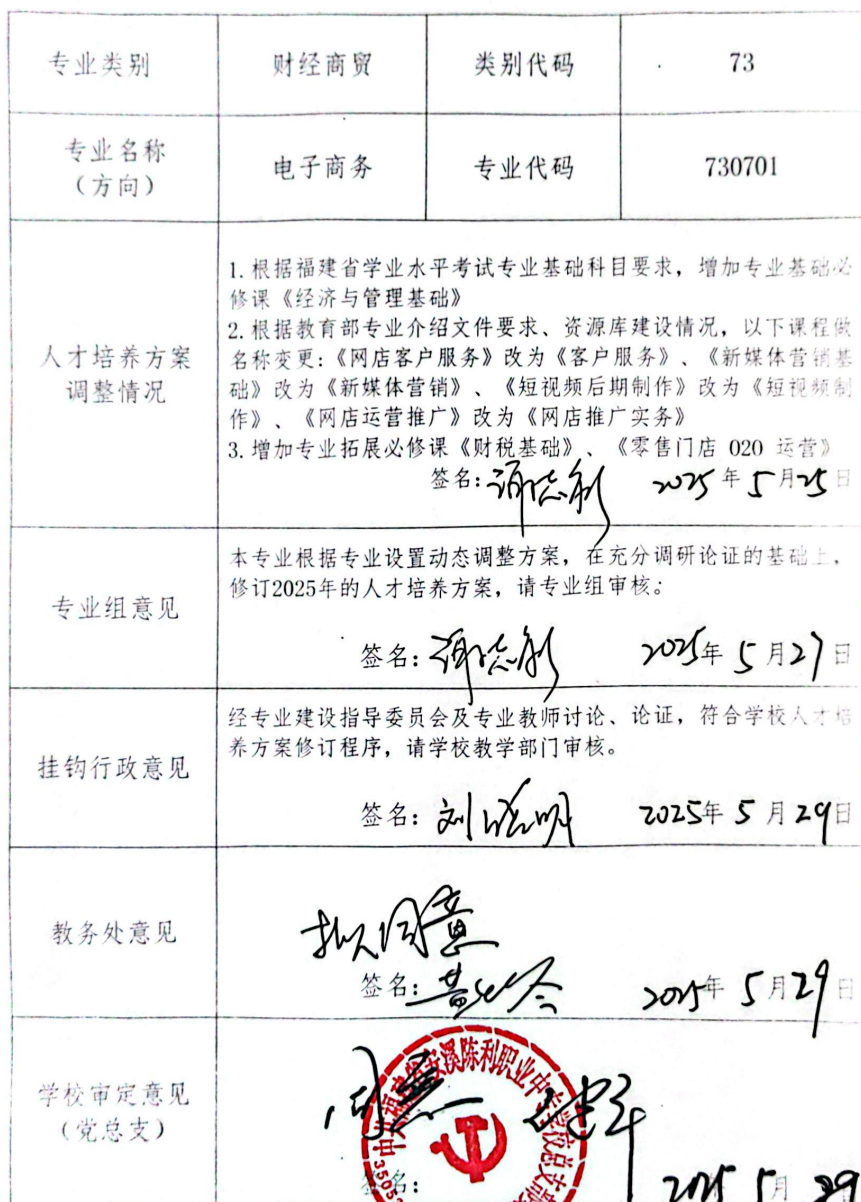 专业类别 财经商贸 类别代码 73
专业名称 电子商务 专业代码 730701
（方向）
人才培养方案
调整情况
1.根据福建省学业水平考试专业基础科目要求，增加专业基础必
修课《经济与管理基础》
2.根据教育部专业介绍文件要求、资源库建设情况，以下课程做
名称变更：《网店客户服务》改为《客户服务》、《新媒体营销基
础》改为《新媒体营销》、《短视频后期制作》改为《短视频制
作》、《网店运营推广》改为《网店推广实务》
3.增加专业拓展必修课《财税基础》、《零售门店 O2O 运营》
签名： 2025年5月25日
专业组意见
本专业根据专业设置动态调整方案，在充分调研论证的基础上，
修订2025年的人才培养方案，请专业组审核。
签名： 2025年5月27日
挂钩行政意见
经专业建设指导委员会及专业教师讨论、论证，符合学校人才培
养方案修订程序，请学校教学部门审核。
签名：刘晓明 2025年5月29日
教务处意见
拟同意
签名：黄 2025年5月29日
学校审定意见
（党总支）
同意
安溪陈利职业中专学校总支部
签名： 2025 5月29